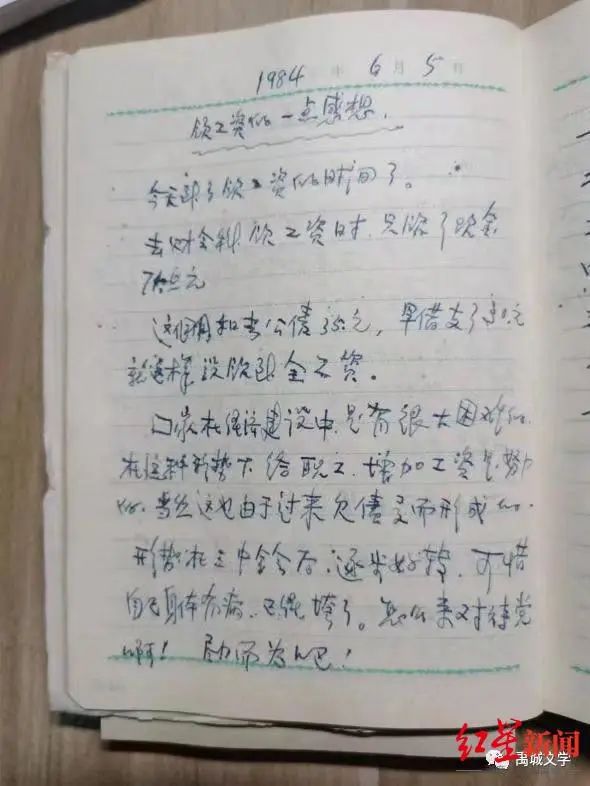 1984 年 6 月 5 日
领工资的一点感想.
今天到了领工资的时间了。
去财会科领工资时.只领了现金
元
这个月扣去公债35元,早借支了30元
就这样没领到全工资。
国家在经济建设中.是有很大困难的.
在这种形势下给职工.增加工资是努力
的.当然这也由于过来欠债多而形成的.
形势在三中全会后.逐步好转.可惜
自己身体有病.已能垮了。怎么来对待党
啊!尽力而为吧!
红星新闻
禹城文学